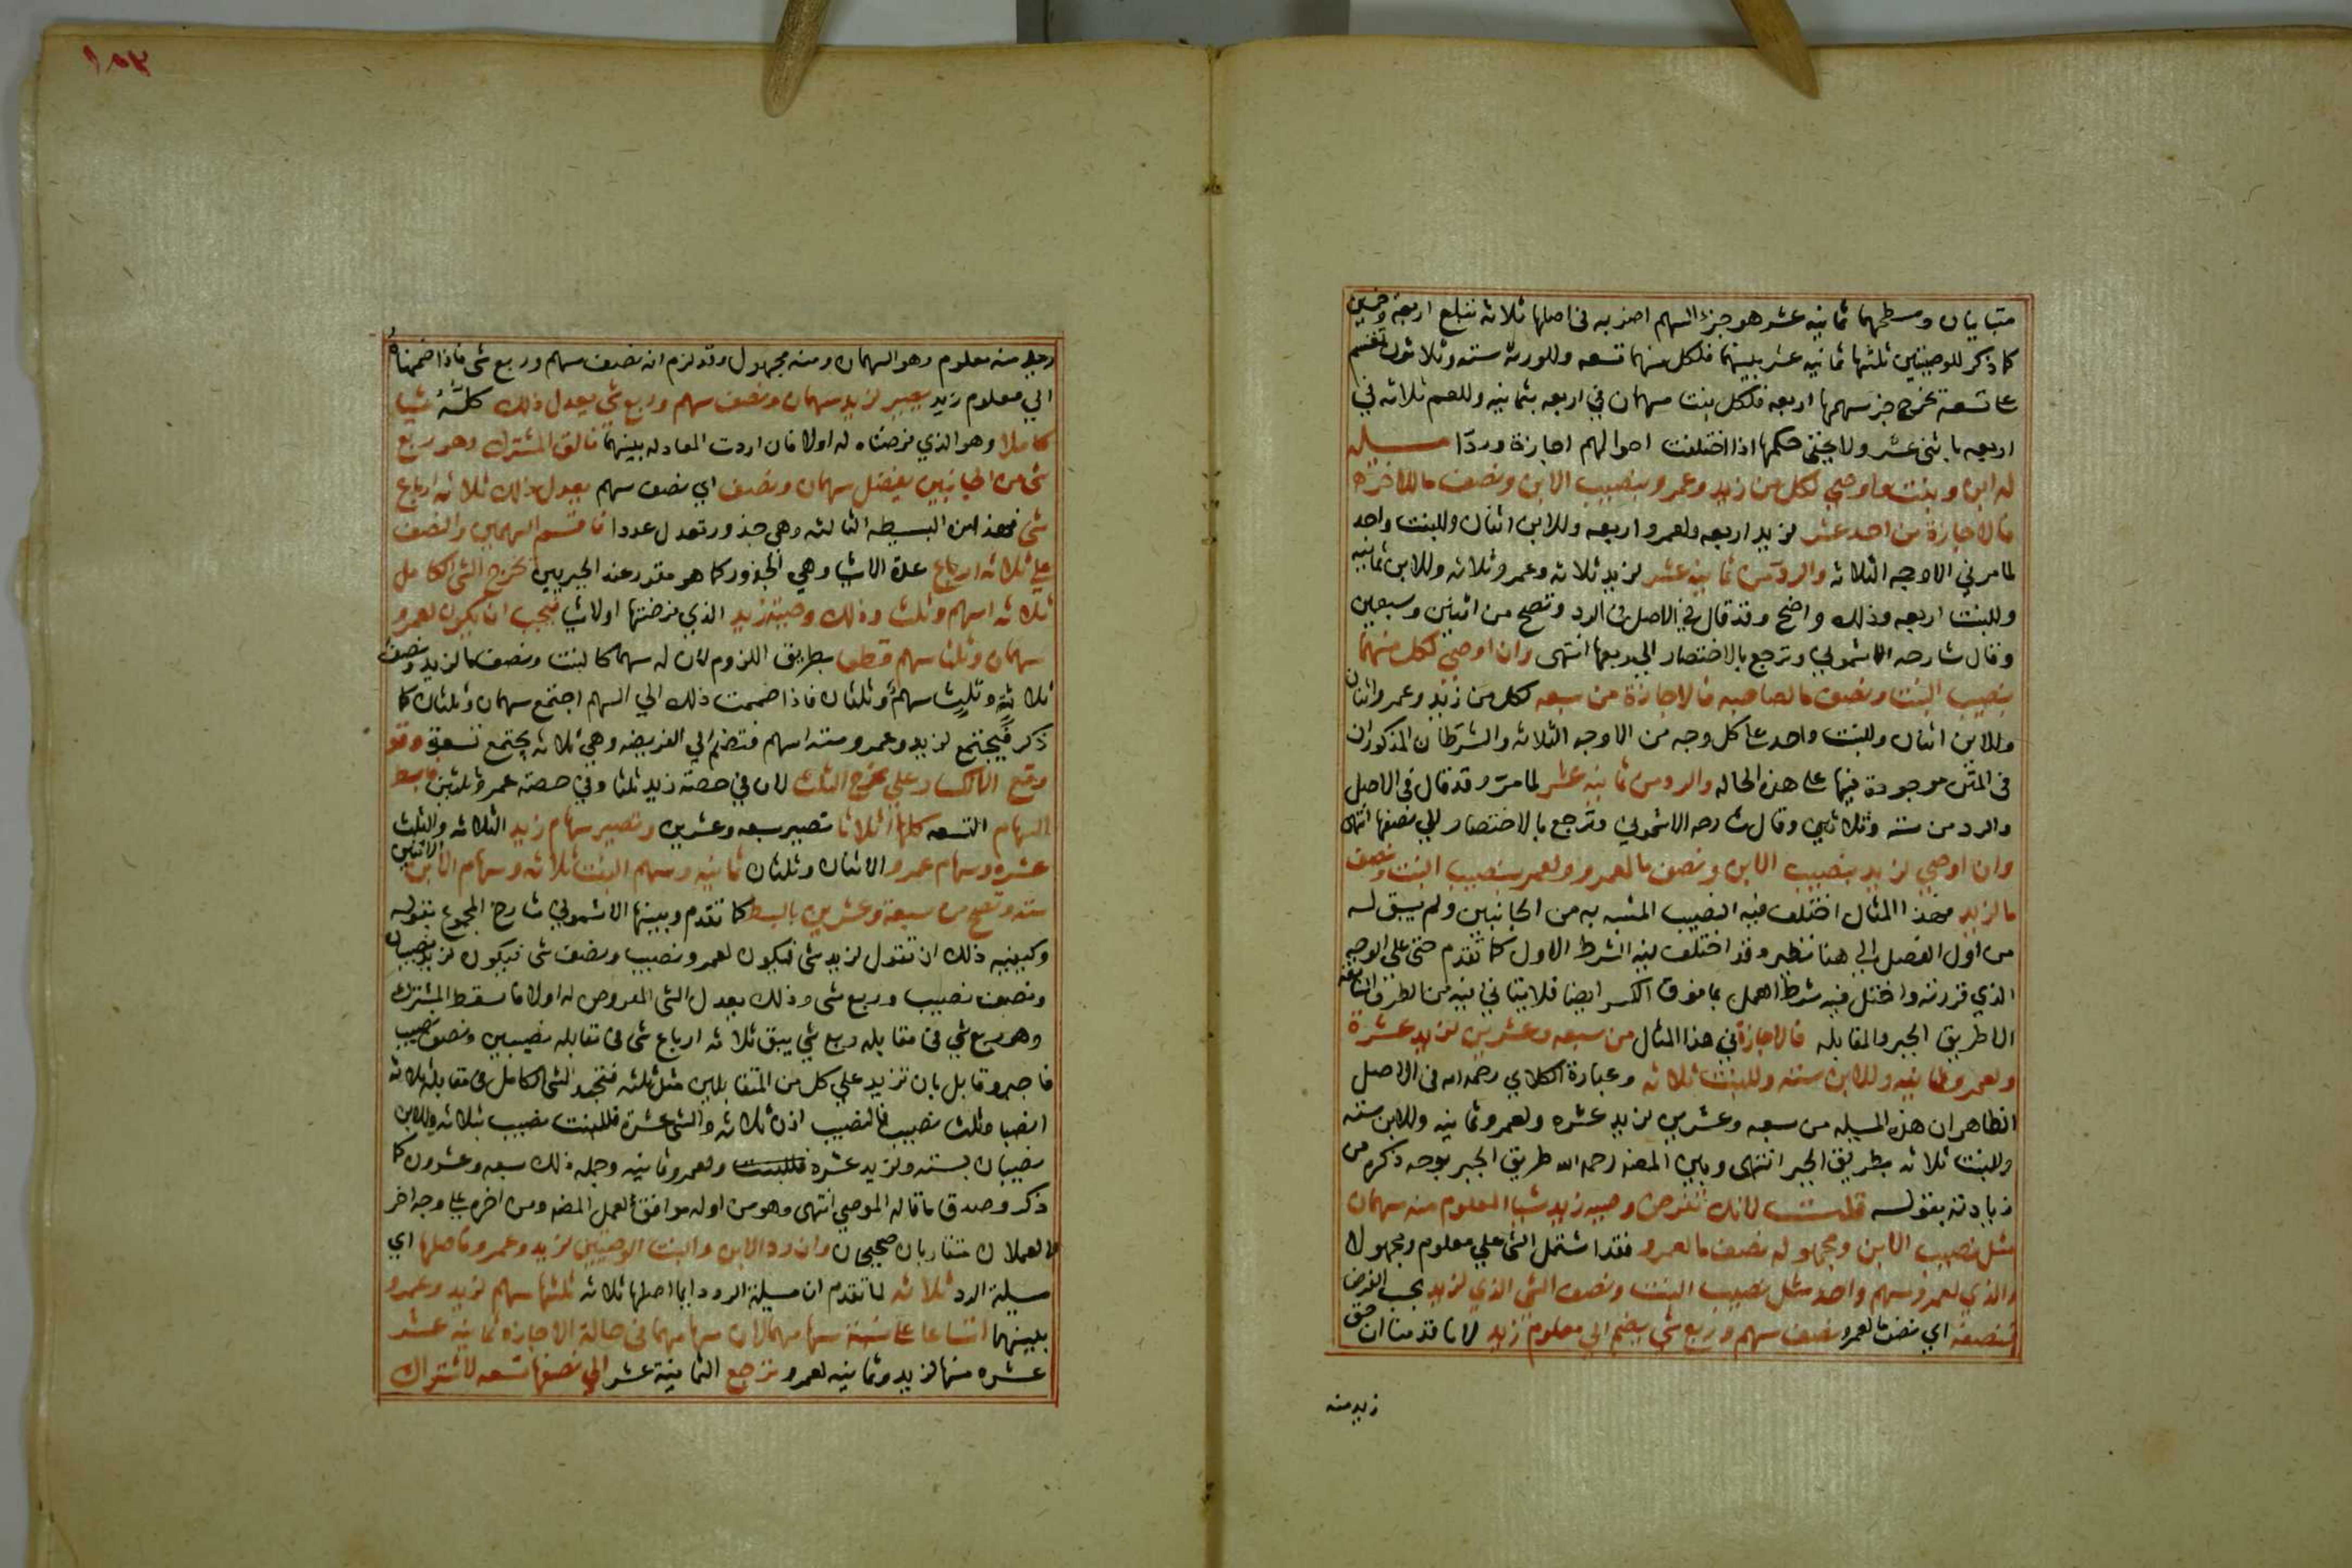 متباينان ومسطحهما ثمانيه عشر هو جزء السهم اضربه في اصلها ثلاثه تبلغ اربعة وخمسين
كما ذكر للوصيتين ثلثها ثمانيه عشر بينهما فلكل منهما تسعه وللورثه سته وثلاثون تقسم
على تسعة يخرج جز سهمها اربعه فلكل بنت سهمان في اربعه بثمانيه وللعم ثلاثه في
اربعه باثنى عشر ولا يخفى حكمها اذا اختلفت احوالهم اجازة وردّا مسيله
له ابن وبنت واوصي لكل من زيد وعمرو بنصيب الابن ونصف ما للاخر
فالاجازة من احد عشر لزيد اربعه ولعمرو اربعه وللابن اثنان وللبنت واحد
لما مر في الاوجه الثلاثه والرد من ثمانية عشر لزيد ثلاثه وعمرو ثلاثه وللابن ثمانيه
وللبنت اربعه وذلك واضح وقد قال في الاصل في الرد وتصح من اثنين وسبعين
وقال شارحه الاشموني وترجع بالاختصار الي ربعها انتهى وان اوصي لكل منهما
بنصيب البنت ونصف ما لصاحبه فالاجازة من سبعه لكل من زيد وعمرو اثنان
وللابن اثنان وللبنت واحد على كل وجه من الاوجه الثلاثه والشرطان المذكوران
في المتن موجودة فيها على هذه الحاله والرد من ثمانيه عشر لما مر وقد قال في الاصل
والرد من سته وثلاثين وقال شارحه الاشموني وترجع بالاختصار الي نصفها انتهى
وان اوصي لزيد بنصيب الابن ونصف ما لعمرو ولعمرو بنصيب البنت ونصف
ما لزيد فهذا المثال اختلف فيه النصيب المشبه به من الجانبين ولم يسبق له
من اول الفصل الي هنا نظير وقد اختلف فيه الشرط الاول كما تقدم حتى على الوجه
الذي قررته واختل فيه شرط العمل بما فوق الكسر ايضا فلا يتاتي فيه من الطرق السابقه
الا طريق الجبر والمقابله فالاجازة في هذا المثال من سبعه وعشرين لزيد عشرة
ولعمرو ثمانيه وللابن سته وللبنت ثلاثه وعبارة الكلاي رحمه الله في الاصل
الظاهر ان هذه المسيله من سبعه وعشرين لزيد عشره ولعمرو ثمانيه وللابن سته
وللبنت ثلاثه بطريق الجبر انتهى وبين المصنف رحمه الله طريق الجبر بوجه ذكره من
زيادته بقوله قلت لانك تفرض وصيه زيد شيا المعلوم منه سهمان
مثل نصيب الابن ومجهوله نصف ما لعمرو فقد اشتمل الشي علي معلوم ومجهولا
والذي لعمرو سهم واحد مثل نصيب البنت ونصف الشي الذي لزيد بحسب الفرض
فنصفه اي نصف ما لعمرو نصف سهم وربع شي يضم الي معلوم زيد لانا قدمنا ان حق
زيد منه
زيد منه معلوم وهو السهمان ومنه مجهول وقد لزم انه نصف سهم وربع شي فاذا ضممناه
الي معلوم زيد يصير لزيد سهمان ونصف سهم وربع شي يعدل ذلك كله شيا
كاملا وهو الذي فرضناه له اولا فان اردت المعادله بينهما فالق المشترك وهو ربع
شي من الجانبين يفضل سهمان ونصف اي نصف سهم يعدل ذلك ثلاثه ارباع
شي فهذه من البسيطه الثالثه وهي جذور تعدل عددا فاقسم السهمين والنصف
على ثلاثه ارباع عدة الاشيا وهي الجذور كما هو مقرر عند الجبريين يخرج الشي الكامل
ثلاثه اسهم وثلث وذلك وصية زيد الذي فرضتها اولا شيا فيجب ان يكون لعمرو
سهمان وثلثا سهم قطعا بطريق اللزوم لان له سهما كالبنت ونصف ما لزيد ونصف
ثلاثة وثلث سهم وثلثان فاذا ضممت ذلك الي السهم اجتمع سهمان وثلثان كما
ذكر فيجتمع لزيد وعمرو سته اسهم فتضم الي الفريضه وهي ثلاثه يجتمع تسعة وقد
وقع الانكسار علي مخرج الثلث لان في حصة زيد ثلثا وفي حصة عمرو ثلثين فابسط
السهام التسعه كلها اثلاثا تصير سبعه وعشرين وتصير سهام زيد الثلاثه والثلث
عشره وسهام عمرو الاثنان وثلثان ثمانيه وسهم البنت ثلاثه وسهام الابن الاثنين
سته وتصح من سبعة وعشرين بالبسط كما تقدم وبينها الاشموني شارح المجموع بقوله
وكيفيه ذلك ان تقول لزيد شي فيكون لعمرو نصيب ونصف شي فيكون لزيد نصيبان
ونصف نصيب وربع شي وذلك يعدل الشي المفروض له اولا فاسقط المشترك
وهو ربع شي في مقابله ربع شي يبق ثلاثه ارباع شي في مقابله نصيبين ونصف نصيب
فاجبر وقابل بان تزيد علي كل من المتقابلين مثل ثلثه فتجد الشي الكامل في مقابله ثلاثه
انصبا وثلث نصيب فالنصيب اذن ثلاثه والشي عشرة فللبنت نصيب بثلاثه وللابن
نصيبان بسته ولزيد عشره فللبنت ولعمرو ثمانيه وجمله ذلك سبعه وعشرون كما
ذكر وصدق ما قاله الموصي انتهى وهو من اوله موافق لعمل المصنف ومن اخره علي وجه اخر
فالعملان متقاربان صحيحان وان رد الابن والبنت الوصيتين لزيد وعمرو فاصلها اي
مسيلة الرد ثلاثه لما تقدم ان مسيلة الرد دايما اصلها ثلاثه ثلثها سهم لزيد وعمرو
بينهما اتساعا على نسبة سهامهما لان سهامهما في حالة الاجازه ثمانيه عشر
عشره منها لزيد وثمانيه لعمرو وترجع الثمانية عشر الي نصفها تسعه لاشتراك
١٥٣